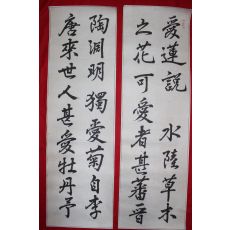 愛蓮說 水陸草木
之花可愛者甚蕃晉
陶淵明獨愛菊自李
唐來世人甚愛牡丹予